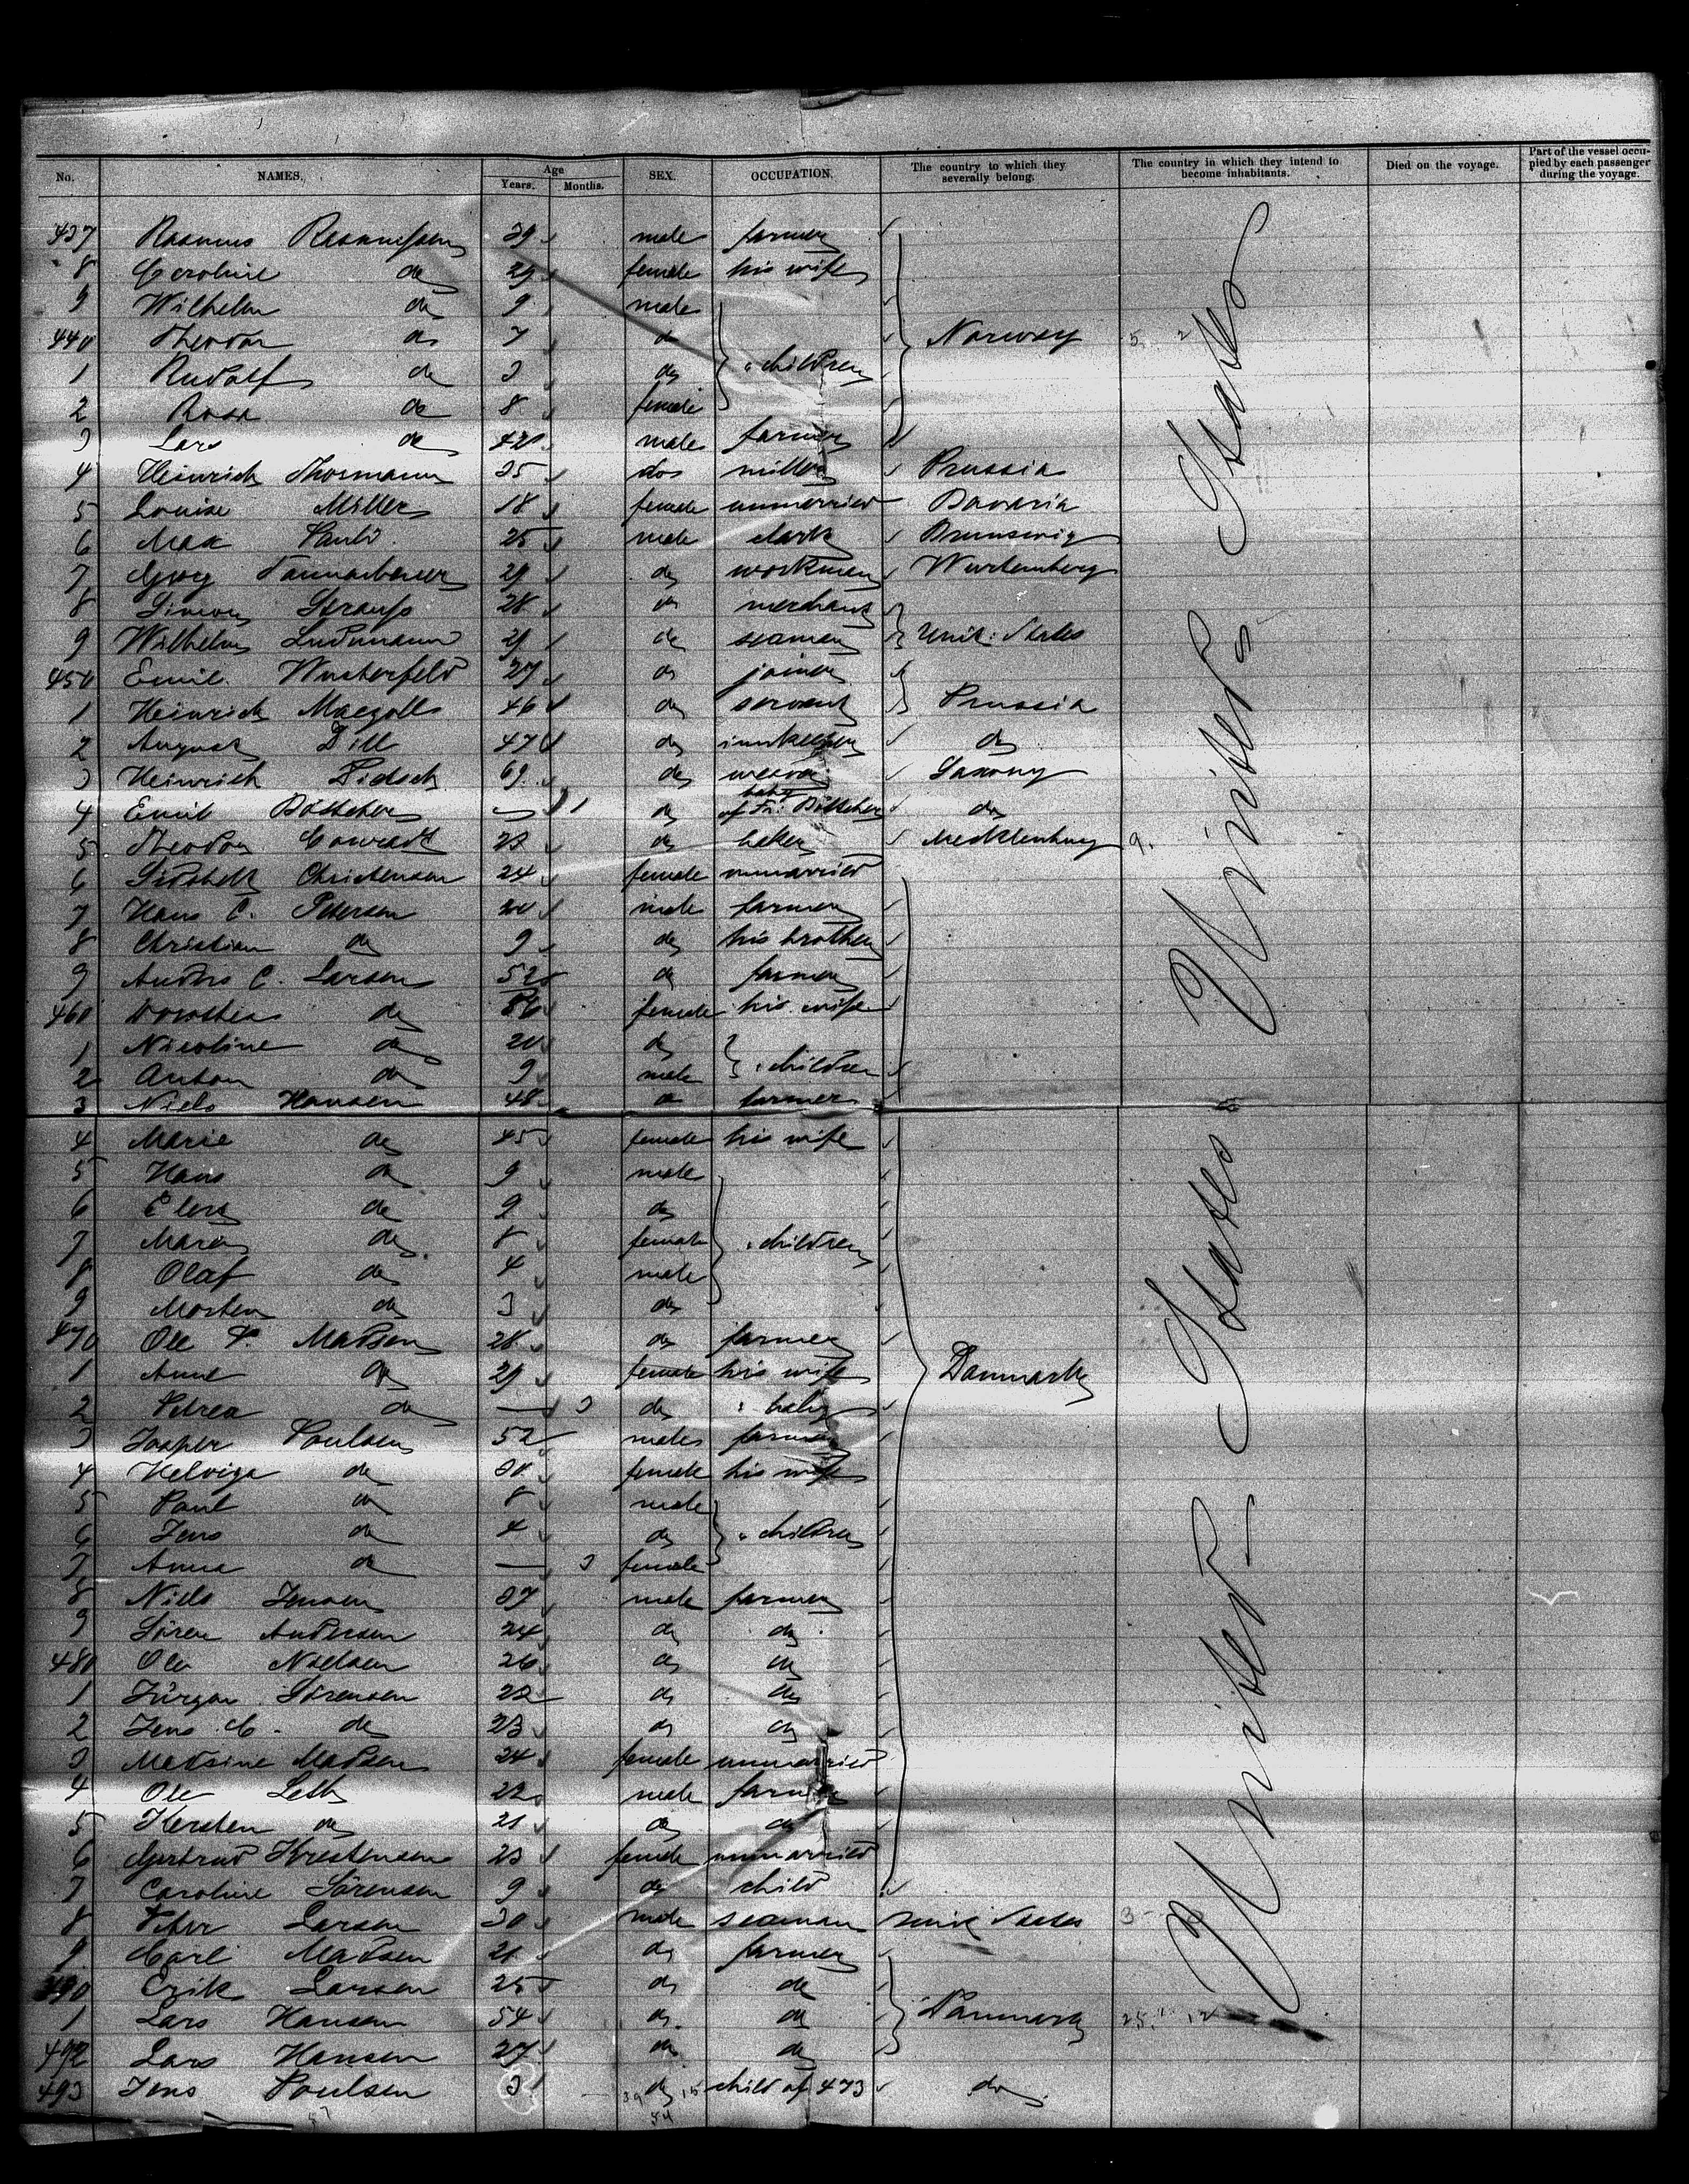 No. NAMES. Age Years. Months. SEX. OCCUPATION. The country to which they severally belong. The country in which they intend to become inhabitants. Died on the voyage. Part of the vessel occupied by each passenger during the voyage.
437 Rasmus Rasmussen 39 male farmer
8 Caroline do 29 female his wife
9 Wilhelm do 9 male
440 Theodor do 7 do Norway
1 Rudolf do 3 do children
2 Rosa do 8 female
3 Lars do 42 male farmer
4 Heinrich Thormann 25 do miller Prussia
5 Louise Miller 18 female unmarried Bavaria
6 Max 25 male clark Brunswig
7 Georg Tannenbauer 29 do workman Wurtemberg
8 Simon Strauss 28 do merchant
9 Wilhelm Ludemann 29 do seaman Unit: States
450 Emil Wusterfeld 27 do joiner
1 Heinrich 46 do servant Prussia
2 August Dill 47 do innkeeper do
3 Heinrich 69 do weaver Saxony
4 Emil Böttcher — 1 do baby of Fr: Böttcher do
5 Theodor Conradt 23 do baker Mecklenburg 9.
6 Sidsbeth Christensen 24 female unmarried
7 Hans C. Petersen 20 male farmer
8 Christian do 9 do his brother
9 Anders C. Larsen 52 do farmer
460 Dorothea do 56 female his wife
1 Nicoline do 20 do children
2 Anton do 9 male
3 Niels Hansen 48 do farmer
4 Marie do 45 female his wife
5 Hans do 9 male
6 do 9 do
7 Maren do 8 female children
8 Olaf do 4 male
9 Morten do 3 do
470 Ole P. Madsen 28 do farmer
1 Anne do 29 female his wife Danmark
2 Petrea do — 3 do baby
3 Jesper Poulsen 52 male farmer
4 Helviga do 30 female his wife
5 Paul do 8 male
6 Jens do 4 do children
7 Anna do — 3 female
8 Niels Jensen 37 male farmer
9 Sören Andersen 24 do do
480 Ole Nielsen 26 do do
1 Jürgen Sörensen 22 do do
2 Jens C. do 23 do do
3 Madsine Madsen 24 female unmarried
4 Ole Leth 22 male farmer
5 Kersten do 21 do do
6 Gertrud Krestensen 23 female unmarried
7 Caroline Sörensen 9 do child
8 Peter Larsen 30 male seaman Unit States 3
9 Carl Madsen 21 do farmer
490 Erik Larsen 25 do do
1 Lars Hansen 54 do do Danmark 25 12
492 Lars Hansen 27 do do
493 Jens Poulsen 3 do child of 473 do
39 15
57 54
United States
United States